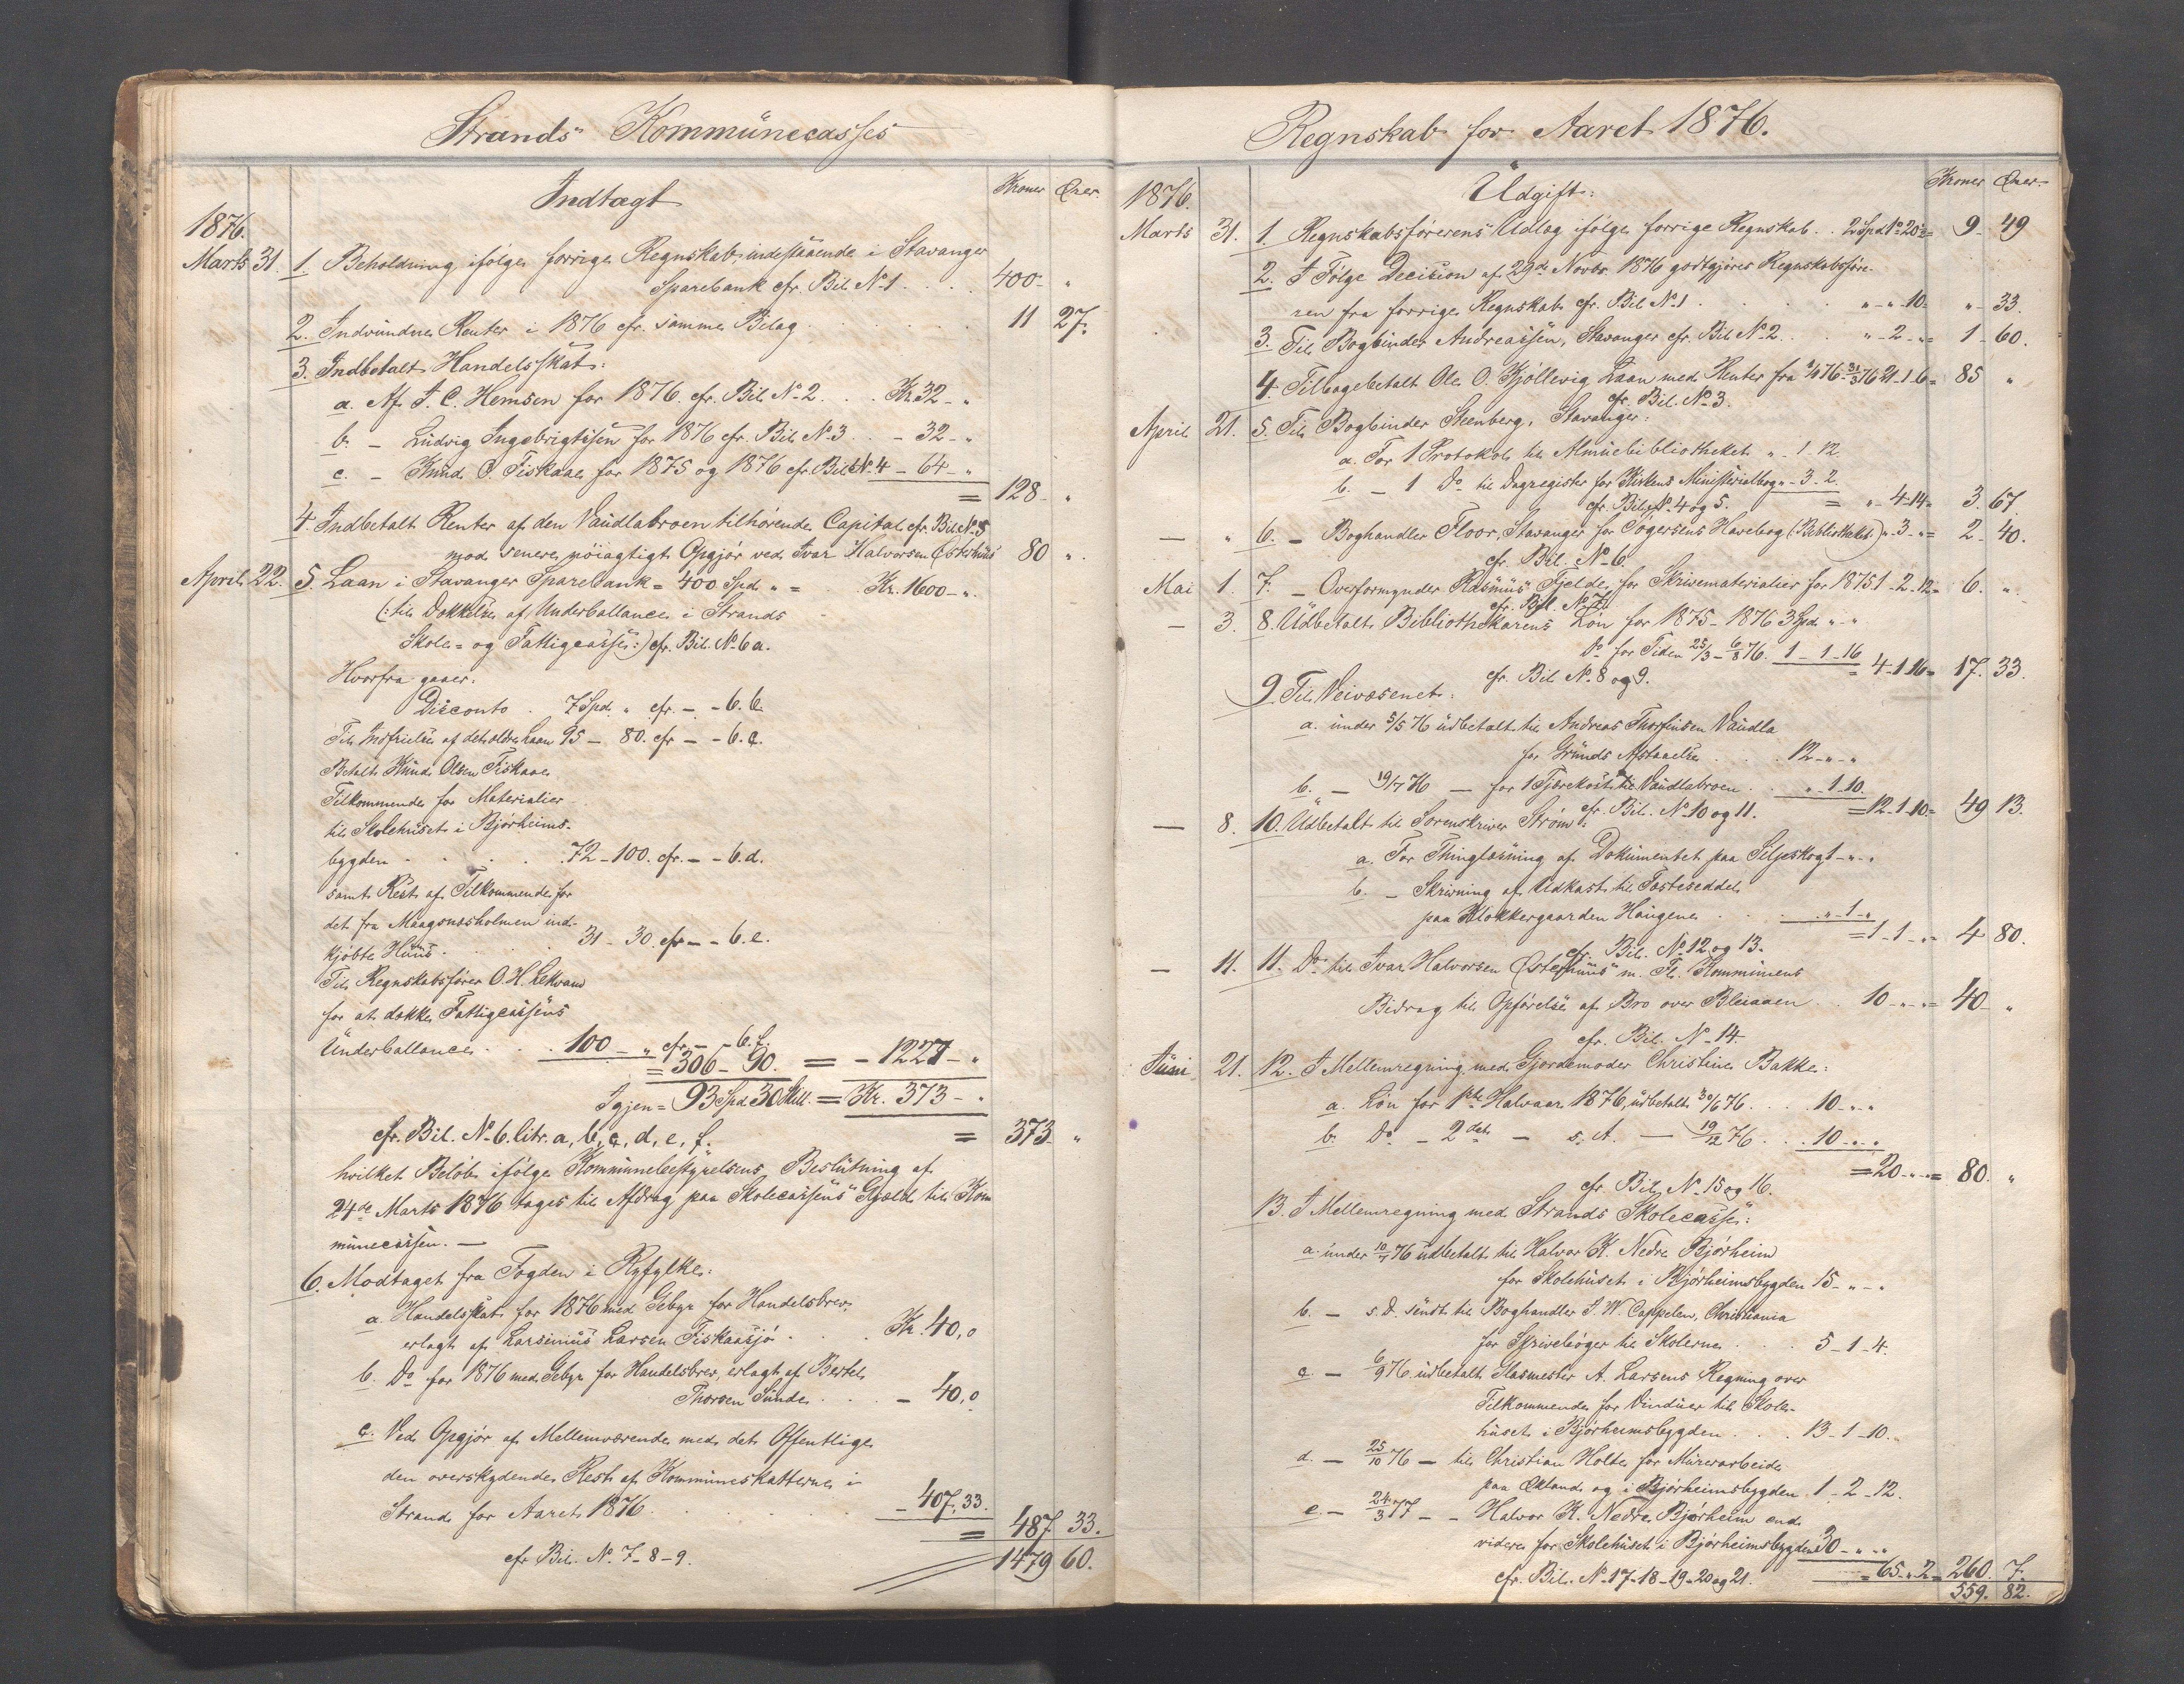 Strands Kommünecasses
Indtægt
Kroner Ører
1876.
Marts 31. 1. Beholdning ifølge forrige Regnskab, indestaaende i Stavanger
Sparebank cfr. Bil. No 1 . . . . 400 - "
2. Indvundne Renter i 1876 cfr. samme Bilag . . . . 11 27.
3. Indbetalt Handelsskat:
a. Af T. C. Hemsen for 1876. cfr. Bil. No 2 . . . Kr. 32 - "
b. - Ludvig Ingebrigtssen for 1876 cfr. Bil. No 3 . . - 32 - "
c. - Knud O. Fiskaae for 1875 og 1876 cfr. Bil. No. 4 - 64 - "
= 128 - "
4. Indbetalt Renter af den Vaudlabroen tilhørende Capital cfr. Bil. No. 5
mod senere nöiagtigt Opgjør ved Ivar Halvorsen Østerhus 80 ".
April 22. 5. Laan i Stavanger Sparebank = 400 Spd. " = Kr. 1600 - ".
(: til Dækkelse af Underballance i Strands
Skole- og Fattigcasse :) cfr. Bil. No. 6 a.
Hvorfra gaaer:
Disconto . 7 Spd. " cfr. - - 6. b.
Til Indfrielse af det ældre Laan 95 - 80. cfr. - - 6. c.
Betalt Knud Olsen Fiskaae
Tilkommende for Materialier
til Skolehuset i Bjørheims-
bygden . . . . . 72 - 100. cfr. - - 6. d.
samt Rest af Tilkommende for
det fra Maagonæsholmen ind-
kjøbte Huus . . . 31 - 30. cfr. - - 6. e.
Til Regnskabsfører O. H. Lekvam
for at dække Fattigcassens
Underballance . . . 100 - " cfr. - - 6. f.
= 306 - 90. = - 1227 - "
Igjen = 93 Spd. 30 Skill. = Kr. 373 - "
cfr. Bil. No. 6. litr. a, b, c, d, e, f. = 373 "
hvilket Beløb ifølge Kommunebestyrelsens Beslutning af
24de Marts 1876 tages til Afdrag paa Skolecassens Gjæld til Kom
munecassen. —
6. Modtaget fra Fogden i Ryfylke:
a. Handelsskat for 1876 med Gebyr for Handelsbrev,
erlagt af Larsinius Larsen Fiskaasjø . . . Kr. 40,0
b. Do for 1876 med Gebyr for Handelsbrev, erlagt af Bertel
Thorsen Sunde . . . - 40,0
c. Ved Opgjør af Mellemværende med det Offentlige
den overskydende Rest af Kommuneskatterne i
Strand for Aaret 1876 . . . . - 407. 33.
= 487 33.
cfr. Bil. No. 7 - 8 - 9. 1479 60.
Regnskab for Aaret 1876.
Udgift:
Kroner Ører
1876.
Marts 31. 1. Regnskabsførerens Udlæg ifølge forrige Regnskab . . 2 Spd. 1 20½ = 9 - 49
2. I Følge Decision af 29de Novbr. 1876 godtgjøres Regnskabsføre-
ren fra forrige Regnskab cfr. Bil. No. 1 . . . " - " - 10 = " - 33.
3. Til Bogbinder Andreassen, Stavanger cfr. Bil. No. 2 . . " - 2 - " = 1 - 60.
4. Tilbagebetalt Ole O. Kjöllevig Laan med Renter fra 76 - 31/3 76 21 - 1 - 6 = 85 "
cfr. Bil. No. 3.
April 21. 5. Til Bogbinder Steenberg, Stavanger:
a. For 1 Protokol til Almuebibliotheket " - 1 - 12.
b. - 1 Do til Dagregister for Kirkens Ministerialbog " - 3 - 2.
cfr. Bil. No. 4 og 5. = " - 4 - 14 = 3. 67.
— " 6. - Boghandler Floor, Stavanger for Havebog (: Bibliotheket :) " - 3 - " = 2 - 40.
cfr. Bil. No. 6.
Mai 1. 7. - Overformynder Rasmus Fjelde for Skrivematerialier for 1875 1 - 2 - 12 = 6. ".
cfr. Bil. No. 7.
— 3. 8. Udbetalt Bibliothekarens Løn for 1875 - 1876 3 Spd. " - "
Do for Tiden 25/3 - 6/8 76. 1 - 1 - 16
cfr. Bil. No. 8 og 9. = 4 - 1 - 16 = 17. 33.
9. Til Veivæsenet:
a. under 5/5 76 udbetalt til Andreas Thorfinsen Vaudla
for Grunds Afstaaelse . . . 12 - " - "
b. - 19/7 76 - for 1 Tjærekost til Vaudlabroen . . " - 1 - 10.
cfr. Bil. No. 10 og 11. = 12 - 1 - 10 = 49 13.
— 8. 10. Udbetalt til Sorenskriver Strøm:
a. For Thinglæsning af Dokumentet paa Seljeskog 1 - " - "
b. - Skrivning af Udkast til Fæsteseddel
paa Klokkergaarden Haugene . . . " - 1 - "
cfr. Bil. No. 12 og 13. = 1 - 1 - " = 4 80.
— 11. 11. Do til Ivar Halvorsen Østerhuus m. Fl. Kommunens
Bidrag til Opførelse af Bro over Bleiaaen . . 10 - " - " = 40 - "
cfr. Bil. No. 14.
Juni 21. 12. I Mellemregning med Gjordemoder Christine Bakke:
a. Løn for 1ste Halvaar 1876, udbetalt 30/6 76 . . . 10 - " - "
b. Do - 2det - s. A. - 19/12 76 . . . 10 - " - "
cfr. Bil. No. 15 og 16. = 20 - " - " = 80. "
13. I Mellemregning med Strands Skolecasse:
a. under 10/4 76 udbetalt til Halvor K. Nedre Bjørheim
for Skolehuset i Bjørheimsbygden 15 - " - "
b. - s. D. sendt til Boghandler J. W. Cappelen, Christiania
for Skrivebøger til Skolerne . . . 5 - 1 - 4.
c. - 6/9 76 udbetalt Glasmester A. Larsens Regning over
Tilkommende for Vinduer til Skole-
huset i Bjørheimsbygden . . . 13 - 1 - 10.
d. - 25/10 76 - til Christian Holte for Murerarbeide
paa Ekland og i Bjørheimsbygden . 1 - 2 - 12.
e. - 24/3 77 - - Halvor K. Nedre Bjørheim end
videre for Skolehuset i Bjørheimsbygden 30 - " - "
cfr. Bil. No. 17 - 18 - 19 - 20 og 21. = 65 - " - 2 = 260. 7.
559. 82.